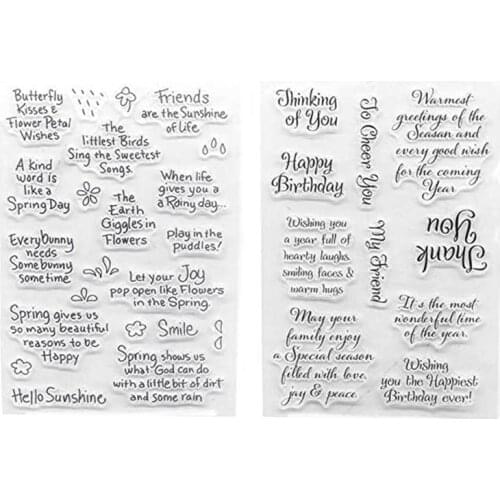 Butterfly
Kisses &
Flower Petal
Wishes
Friends
are the Sunshine
of Life
The
littlest Birds
Sing the Sweetest
Songs.
A kind
word is
like a
Spring Day
When life
gives you a
a Rainy day...
The
Earth
Giggles in
Flowers
Play in the
puddles!
Everybunny
needs
Somebunny
sometime
Let your Joy
pop open like Flowers
in the Spring.
Spring gives us
so many beautiful
reasons to be
Happy
Smile
Spring shows us
what God can do
with a little bit of dirt
and some rain
Hello Sunshine
Thinking
of You
To Cheer You
Warmest
greetings of the
Seasan and
every good wish
for the coming
Year
Happy
Birthday
My Friend
Thank
You
Wishing you
a year full of
hearty laughs,
smiling faces &
warm hugs
It's the most
wonderful time
of the year.
May your
family enjoy
a Special season
filled with love,
jay & peace.
Wishing
you the Happiest
Birthday ever!